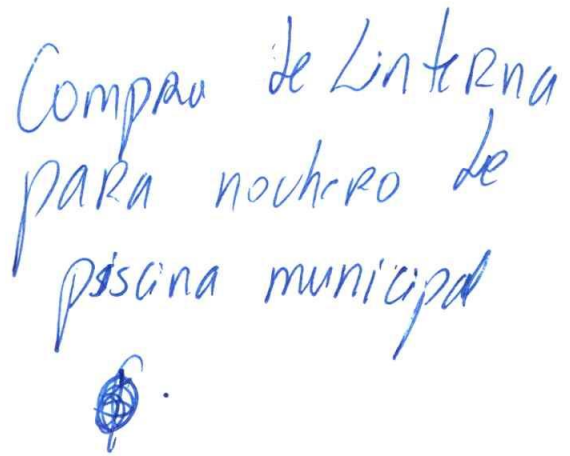 Compra de Linterna
para nochero de
piscina municipal